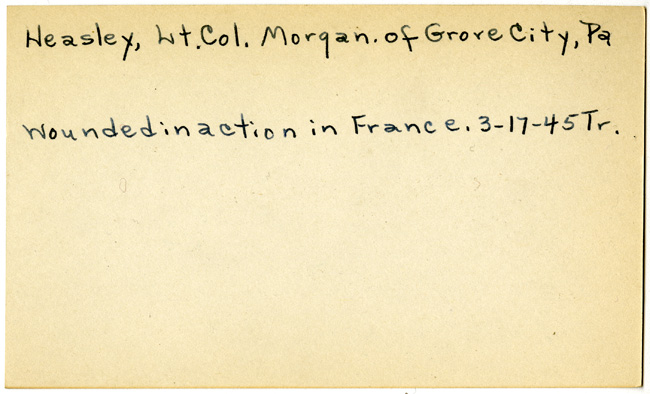 Heasley, Lt. Col. Morgan. of Grove City, Pa
Wounded in action in France. 3-17-45 Tr.